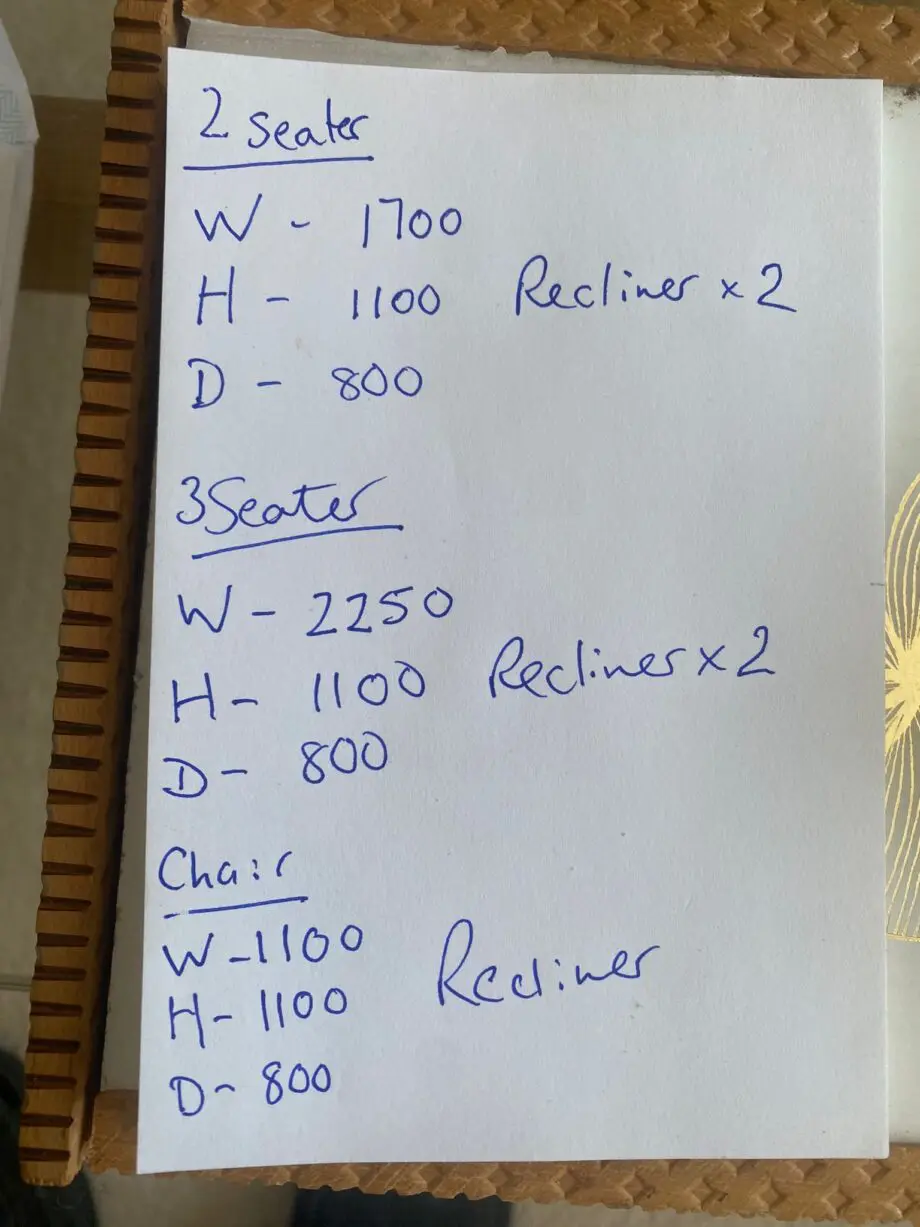 2 Seater
W - 1700
H - 1100 Recliner x 2
D - 800
3 Seater
W - 2250
H - 1100 Recliner x 2
D - 800
Chair
W - 1100
H - 1100 Recliner
D - 800